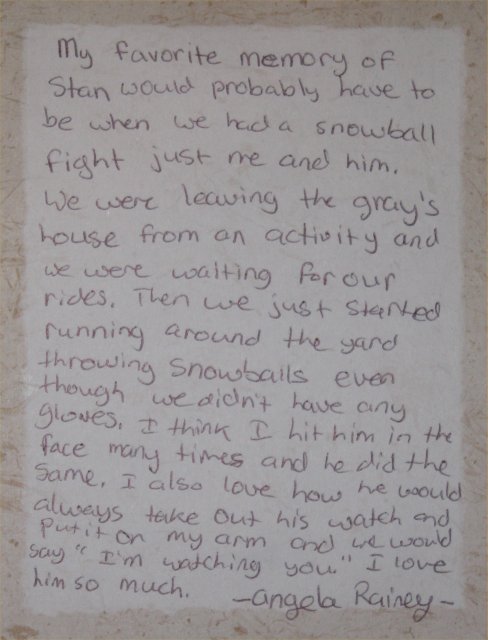 My favorite memory of
Stan would probably have to
be when we had a snowball
fight just me and him.
We were leaving the gray's
house from an activity and
we were waiting for our
rides. Then we just started
running around the yard
throwing snowballs even
though we didn't have any
gloves. I think I hit him in the
face many times and he did the
same. I also love how he would
always take out his watch and
put it on my arm and we would
say "I'm watching you." I love
him so much. -Angela Rainey-